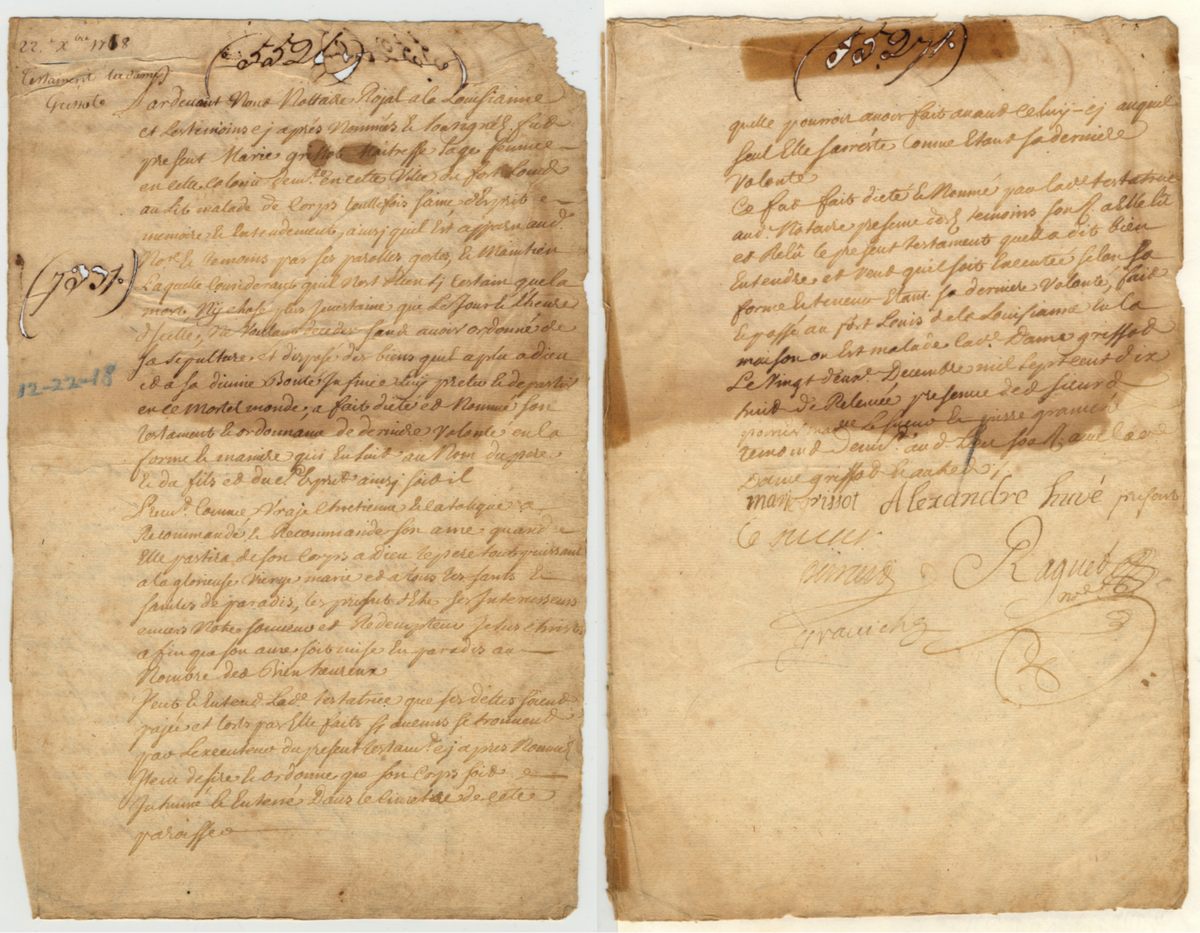 22e Xbre 1718
(5521)
Testament la dame
Grissote
Pardevant Nous Nottaire Roïal a la Louisianne
et Les temoins cj aprés Nommés & soussignés fut
present Marie grissot Maitresse Sage femme
en cette Colonie demte en cette Ville du fort Louis
au Lit malade de Corps touttefois saine d'Esprit
memoire & Entendement, ainsj quil Est aparu aud.
Nore & temoins par ses parolles gestes, & Maintien
(7331.)
Laquelle Considerant quil N'est Rien sj Certain que la
mort Nj chose plus Incertaine que Le Jour & lheure
dicelle, Ne Voulant deceder sans avoir ordonné de
sa sepulture et disposé des biens quil a plu a dieu
et a sa divine Bonté Infinie Luj preter & departir
12-22-18
en ce Mortel monde, a fait dicté et Nommé son
testament & ordonnance de derniere Volonté en la
forme & maniere qui Ensuit au Nom du pere
& du fils et du St Esprit ainsj soit il
Premt Comme Vraje Chretienne & Catolique a
Recommandé & Recommande son ame quand
Elle partira de son Corps a Dieu le pere tout puissant
a la glorieuse Vierge marie et a tous les saints &
saintes de paradis, les priant d'Etre ses Intercesseurs
envers Notre sauveur et Redempteur Jesus Christ
afin que son ame soit mise En paradis au
Nombre des Bien heureux
Veut & Entend Lade testatrice que ses dettes soient
pajées et torts par Elle faits sj aucuns se trouvent
par L'executeur du present testamt cj apres Nommé
Item desire & ordonne que son Corps soit
Inhumé & Enterré Dans le Cimetiere de cette
paroisse
(5527.)
quelle pourroit avoir fait avant celuy-cj auquel
seul Elle s'arréste Comme Etant sa derniere
Volonté
Ce fut fait dicté & Nommé par lade testatrice
aud. Notaire presence des temoins
et Relû le present testament quelle a dit bien
Entendre et Veut qu'il soit Executé selon sa
forme & teneur Etant sa derniere Volonté, fait
& passé au fort Louis de la Louisianne En la
maison ou Est malade lade Dame grissot
Le Vingt deuxe Decembre mil sept cent dix
huit de Relevée presence des sieurs
Le sueur & pierre gravié
remond demt aud. lieu avec lade
Dame grissot
marie grissot Alexandre huvé
Raguet
nore